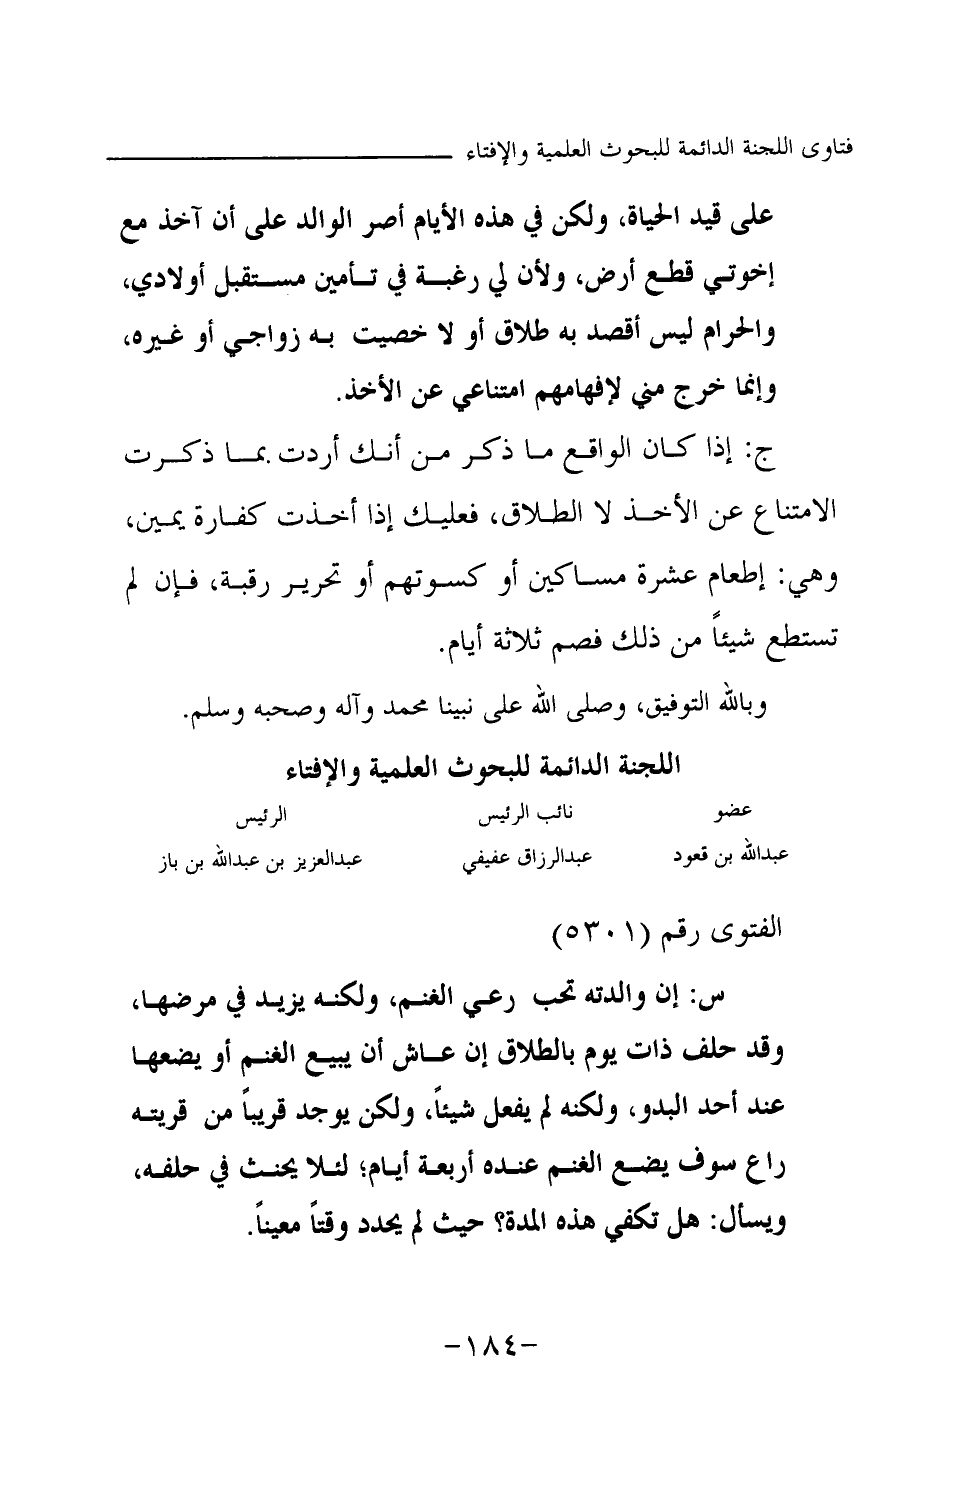 فتاوى اللجنة الدائمة للبحوث العلمية والإفتاء
على قيد الحياة، ولكن في هذه الأيام أصر الوالد على أن آخذ مع
إخوتي قطع أرض، ولأن لي رغبة في تأمين مستقبل أولادي،
والحرام ليس أقصد به طلاق أو لا خصيت به زواجي أو غيره،
وإنما خرج مني لإفهامهم امتناعي عن الأخذ.
ج: إذا كان الواقع ما ذكر من أنك أردت بما ذكرت
الامتناع عن الأخذ لا الطلاق، فعليك إذا أخذت كفارة يمين،
وهي: إطعام عشرة مساكين أو كسوتهم أو تحرير رقبة، فإن لم
تستطع شيئاً من ذلك فصم ثلاثة أيام.
وبالله التوفيق، وصلى الله على نبينا محمد وآله وصحبه وسلم.
اللجنة الدائمة للبحوث العلمية والإفتاء
عضو نائب الرئيس الرئيس
عبدالله بن قعود عبدالرزاق عفيفي عبدالعزيز بن عبدالله بن باز
الفتوى رقم (٥٣٠١)
س: إن والدته تحب رعي الغنم، ولكنه يزيد في مرضها،
وقد حلف ذات يوم بالطلاق إن عاش أن يبيع الغنم أو يضعها
عند أحد البدو، ولكنه لم يفعل شيئاً، ولكن يوجد قريباً من قريته
راع سوف يضع الغنم عنده أربعة أيام؛ لئلا يحنث في حلفه،
ويسأل: هل تكفي هذه المدة؟ حيث لم يحدد وقتاً معيناً.
-١٨٤-